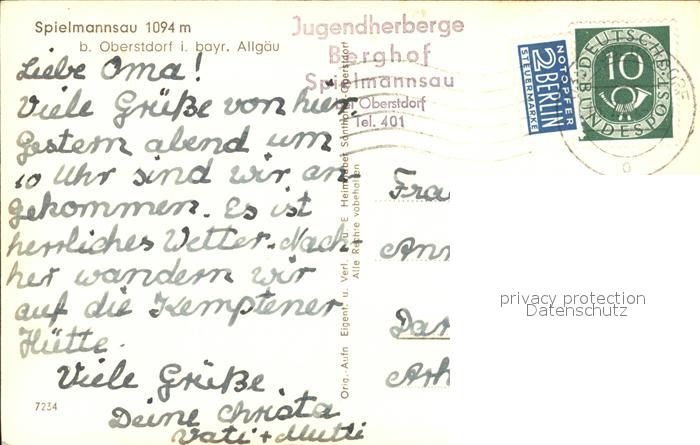 Spielmannsau 1094 m
b. Oberstdorf i. bayr. Allgäu
Liebe Oma!
Viele Grüße von hier.
Gestern abend um
10 Uhr sind wir an-
gekommen. Es ist
herrliches Wetter. Nach-
her wandern wir
auf die Kemptener
Hütte.
Viele Grüße
Deine Christa
Vati + Mutti
7234
Jugendherberge
Berghof
Spielmannsau
bei Oberstdorf
Tel. 401
Orig.-Aufn Eigent. u. Verl. E Heimhuber Sonthofen-Oberstdorf
Alle Rechte vorbehalten
NOTOPFER
2 BERLIN
STEUERMARKE
DEUTSCHE
10
BUNDESPOST
privacy protection
Datenschutz